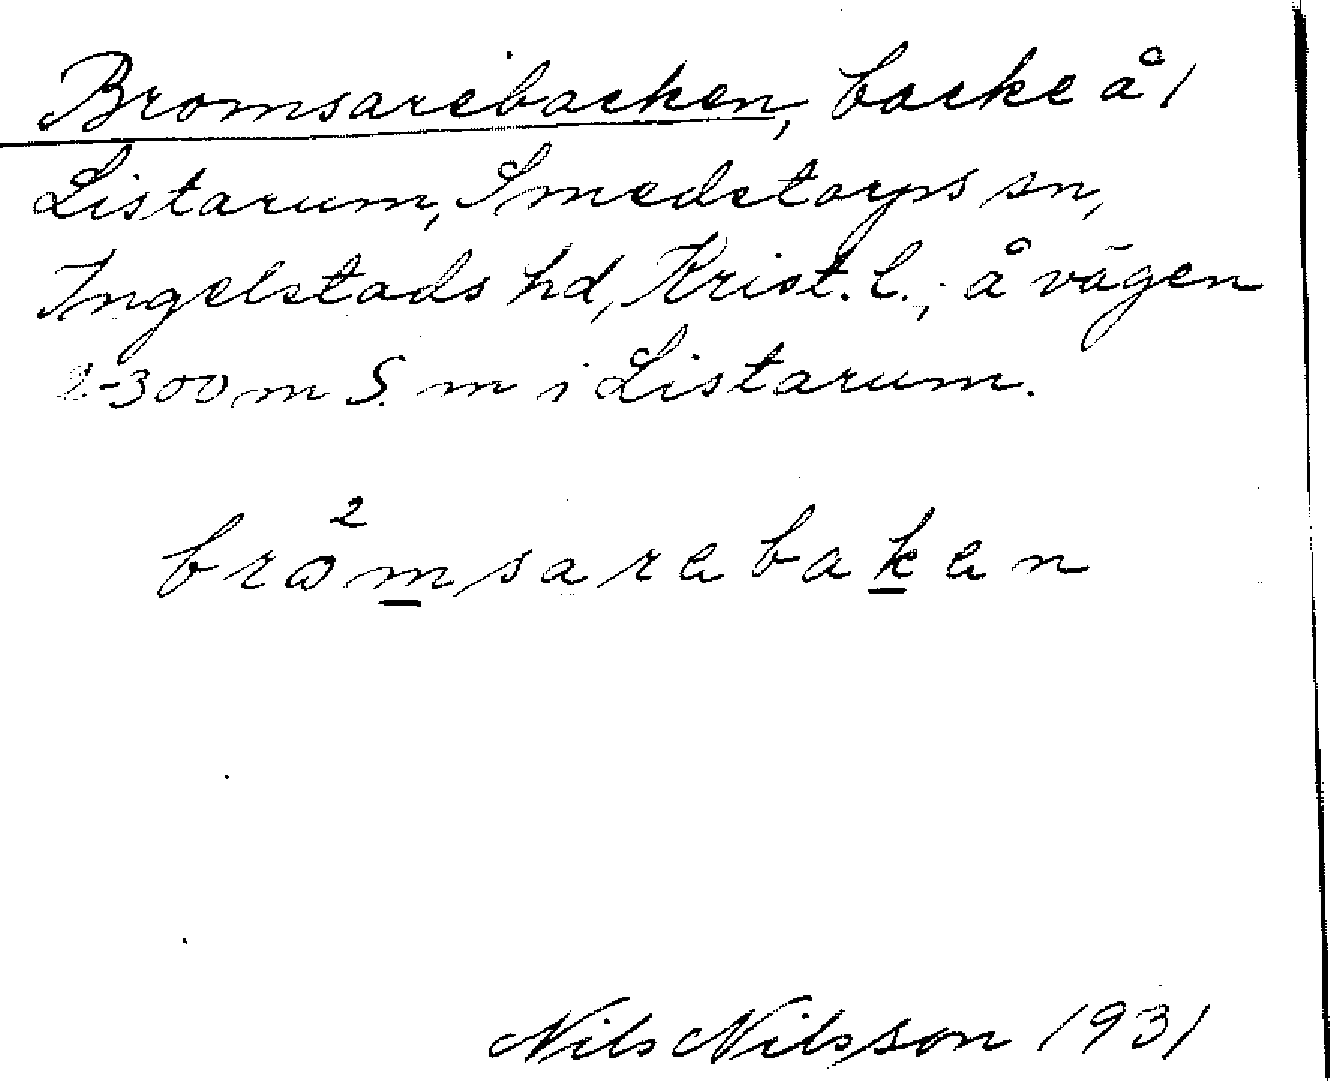 Bromsarebacken, backe å 1
Listarum, Smedstorps sn,
Ingelstads hd, Krist. l., å vägen
2-300 m S. m i Listarum.
2
bromsarebaken
Nils Nilsson 1931